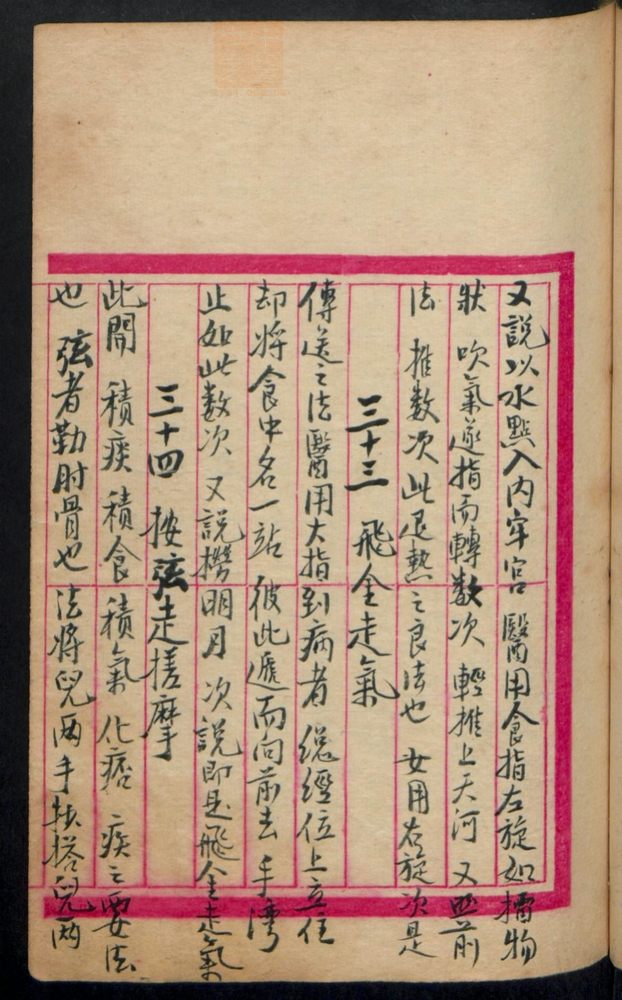 又說以水點入內牢宮 醫用食指左旋如擂物
狀 吹氣遂指而轉數次 輕推上天河 又照前
法 推數次此退熱之良法也 女用右旋次是
三十三 飛金走氣
傳送之法醫用大指到病者 總經位上立住
却將食中名一站 彼此遞而向前去 手灣
止如此數次 又說撈明月 次說即是飛金走氣
三十四 按弦走搓摩
此開 積痰 積食 積氣 化痞 疾之要法
也 弦者勒肘骨也 法將兒兩手扶搭兒兩